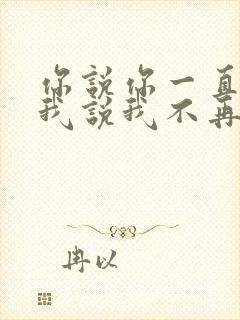 你說你一直
我說我不再
冉以